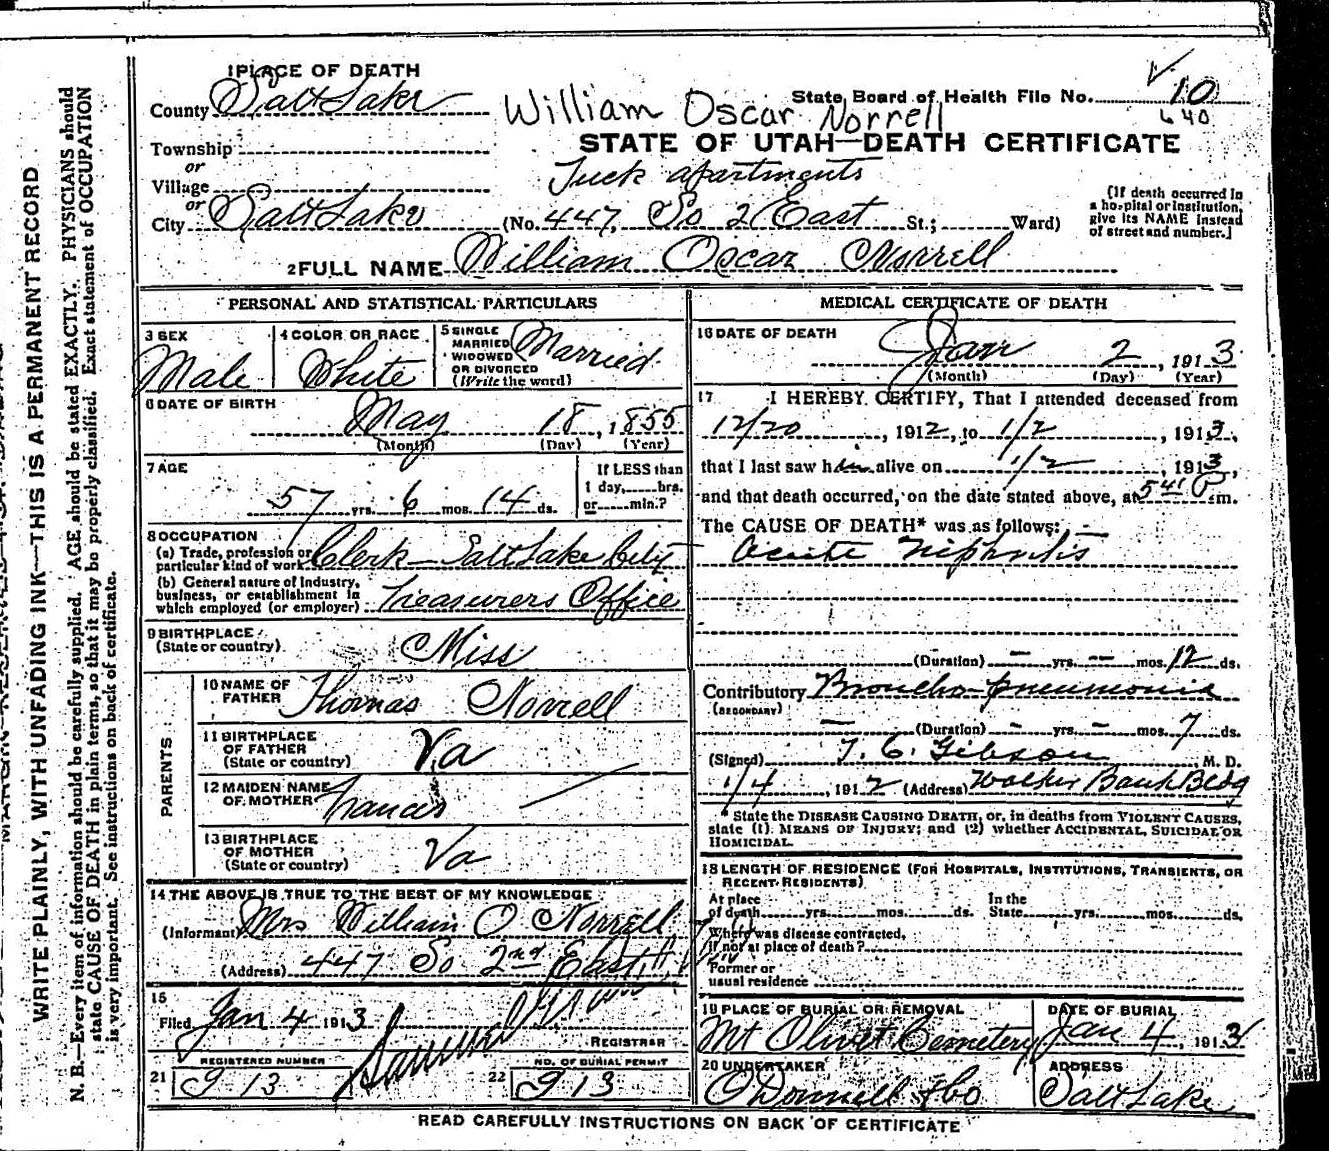 1 PLACE OF DEATH
County Salt Lake
William Oscar Norrell
State Board of Health File No. 10
640
Township
or
Village
or
City Salt Lake
STATE OF UTAH—DEATH CERTIFICATE
Tuck apartments
(No. 447, So 2 East St.; Ward)
(If death occurred in
a hospital or institution,
give its NAME instead
of street and number.)
2 FULL NAME William Oscar Norrell
PERSONAL AND STATISTICAL PARTICULARS
3 SEX
Male
4 COLOR OR RACE
White
5 SINGLE
MARRIED
WIDOWED
OR DIVORCED
(Write the word)
Married
6 DATE OF BIRTH
May 18, 1855
(Month) (Day) (Year)
7 AGE
57 yrs. 6 mos. 14 ds.
If LESS than
1 day, hrs.
or min.?
8 OCCUPATION
(a) Trade, profession or
particular kind of work Clerk — Salt Lake City
(b) General nature of Industry,
business, or establishment in
which employed (or employer) Treasurers Office
9 BIRTHPLACE
(State or country) Miss
PARENTS
10 NAME OF
FATHER Thomas Norrell
11 BIRTHPLACE
OF FATHER
(State or country) Va
12 MAIDEN NAME
OF MOTHER Frances —
13 BIRTHPLACE
OF MOTHER
(State or country) Va
14 THE ABOVE IS TRUE TO THE BEST OF MY KNOWLEDGE
(Informant) Mrs William O Norrell
(Address) 447 So 2nd East
15
Filed Jan 4 1913
REGISTRAR
REGISTERED NUMBER
21 913
NO. OF BURIAL PERMIT
22 913
MEDICAL CERTIFICATE OF DEATH
16 DATE OF DEATH
Jan 2, 1913
(Month) (Day) (Year)
17 I HEREBY CERTIFY, That I attended deceased from
12/20, 1912, to 1/2, 1913,
that I last saw him alive on 1/2, 1913,
and that death occurred, on the date stated above, at 5 P m.
The CAUSE OF DEATH* was as follows:
acute Nephritis
(Duration) — yrs. — mos. 12 ds.
Contributory Broncho-pneumonia
(SECONDARY)
— (Duration) — yrs. — mos. 7 ds.
(Signed) T. C. Gibson, M. D.
1/4, 1912 (Address) Walker Bank Bldg
* State the DISEASE CAUSING DEATH, or, in deaths from VIOLENT CAUSES,
state (1) MEANS OF INJURY; and (2) whether ACCIDENTAL, SUICIDAL OR
HOMICIDAL.
18 LENGTH OF RESIDENCE (FOR HOSPITALS, INSTITUTIONS, TRANSIENTS, OR
RECENT RESIDENTS)
At place
of death yrs. mos. ds.
In the
State yrs. mos. ds.
Where was disease contracted,
if not at place of death?
Former or
usual residence
19 PLACE OF BURIAL OR REMOVAL
Mt Olivet Cemetery
DATE OF BURIAL
Jan 4, 1913
20 UNDERTAKER
O'Donnell & Co
ADDRESS
Salt Lake
READ CAREFULLY INSTRUCTIONS ON BACK OF CERTIFICATE
WRITE PLAINLY, WITH UNFADING INK—THIS IS A PERMANENT RECORD
N. B.—Every item of information should be carefully supplied. AGE should be stated EXACTLY. PHYSICIANS should
state CAUSE OF DEATH in plain terms, so that it may be properly classified. Exact statement of OCCUPATION
is very important. See instructions on back of certificate.